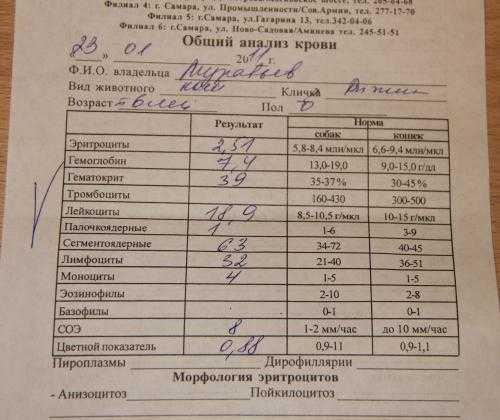 Филиал 4: г. Самара, ул. Промышленности/Сов.Армии, тел. 277-17-70
Филиал 5: г.Самара, ул.Гагарина 13, тел.342-04-06
Филиал 6: г.Самара, ул. Ново-Садовая/Аминева тел. 245-51-51
Общий анализ крови
23 » 01 2011 г.
Ф.И.О. владельца
Вид животного Кличка
Возраст Пол
Результат Норма
собак кошек
Эритроциты 2,51 5,8-8,4 млн/мкл 6,6-9,4 млн/мкл
Гемоглобин 7,4 13,0-19,0 9,0-15,0 г/дл
Гематокрит 39 35-37% 30-45 %
Тромбоциты 160-430 300-500
Лейкоциты 18,9 8,5-10,5 г/мкл 10-15 г/мкл
Палочкоядерные 1 1-6 3-9
Сегментоядерные 63 34-72 40-45
Лимфоциты 32 21-40 36-51
Моноциты 4 1-5 1-5
Эозинофилы 2-10 2-8
Базофилы 0-1 0-1
СОЭ 8 1-2 мм/час до 10 мм/час
Цветной показатель 0,88 0,9-11 0,9-1,1
Пироплазмы Дирофиллярии
Морфология эритроцитов
- Анизоцитоз Пойкилоцитоз